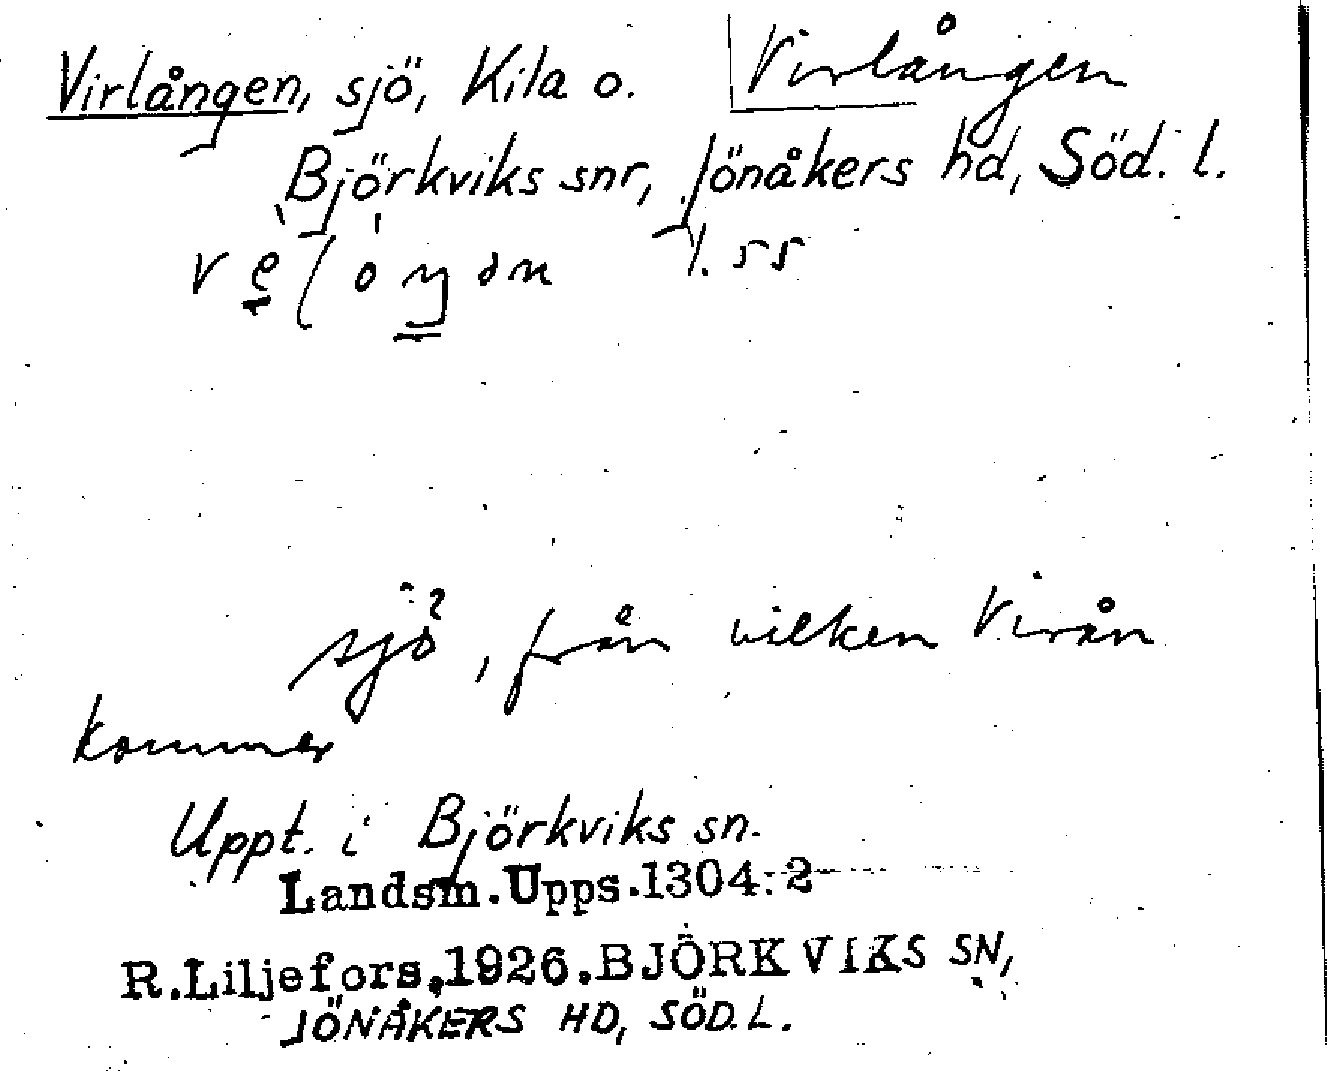 Virlången, sjö, Kila o. Virlången
Björkviks snr, Jönåkers hd, Söd. l.
sjö, från vilken Virån
kommer
Uppt. i Björkviks sn.
Landsm.Upps.1304:2
R.Liljefors,1926.BJÖRKVIKS SN,
JÖNÅKERS HD, SÖD.L.